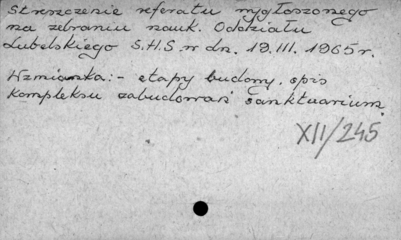 Streszczenie referatu wygłoszonego
na zebraniu nauk. Oddziału
Lubelskiego S.H.S. w dn. 19.III.1965 r.
Wzmianka:- etapy budowy, opis
kompleksu zabudowań sanktuarium.
XII/245